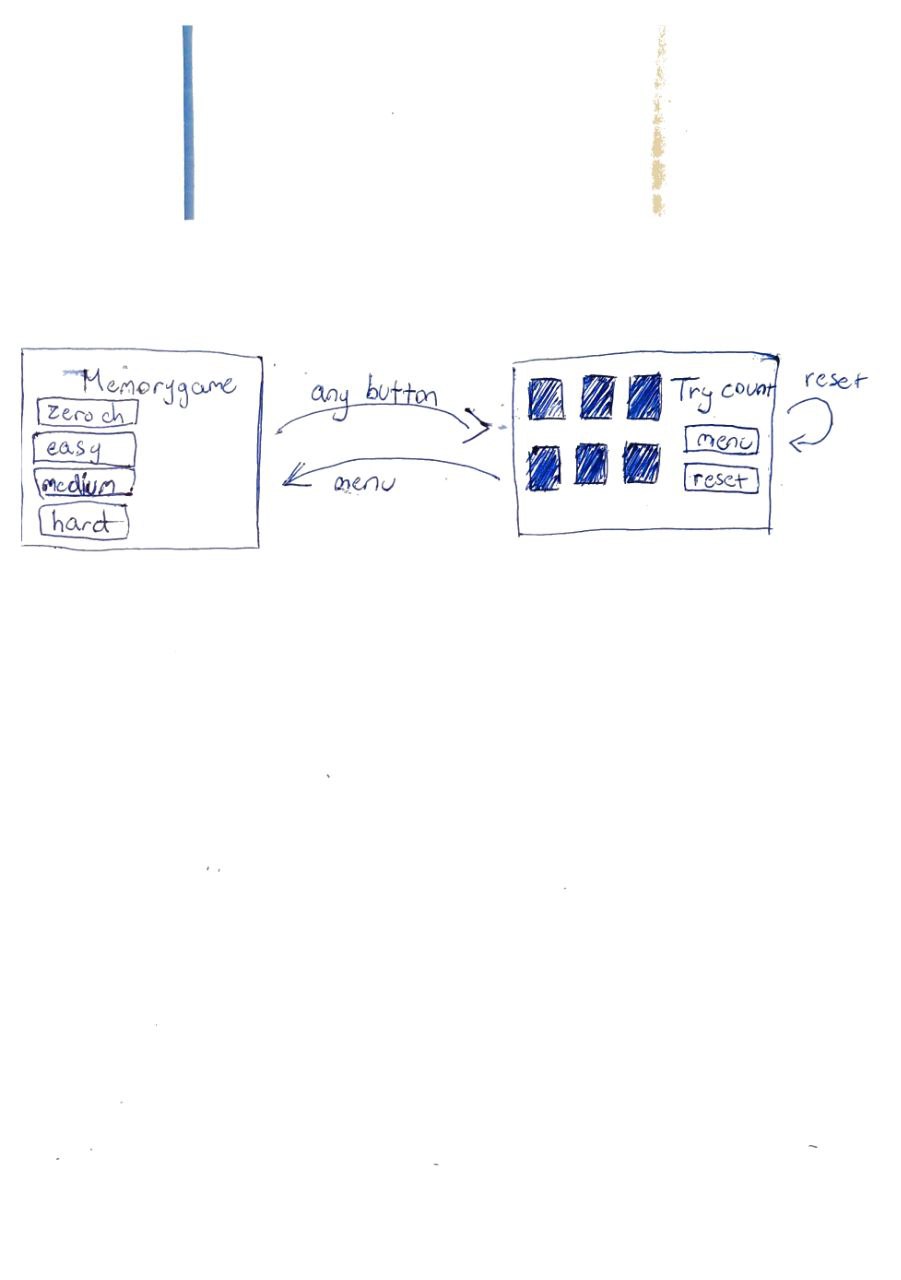 Memorygame
zero ch
easy
medium
hard
any button
menu
Try count
menu
reset
reset